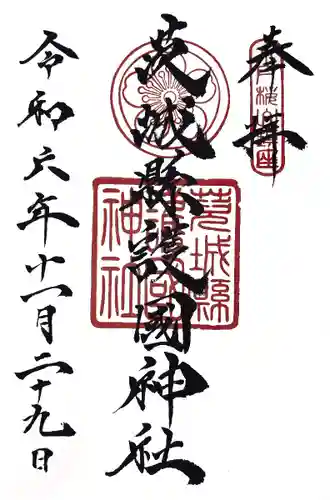 奉拝
茨城縣護國神社
令和六年十一月二十九日
茨城縣
護國
神社